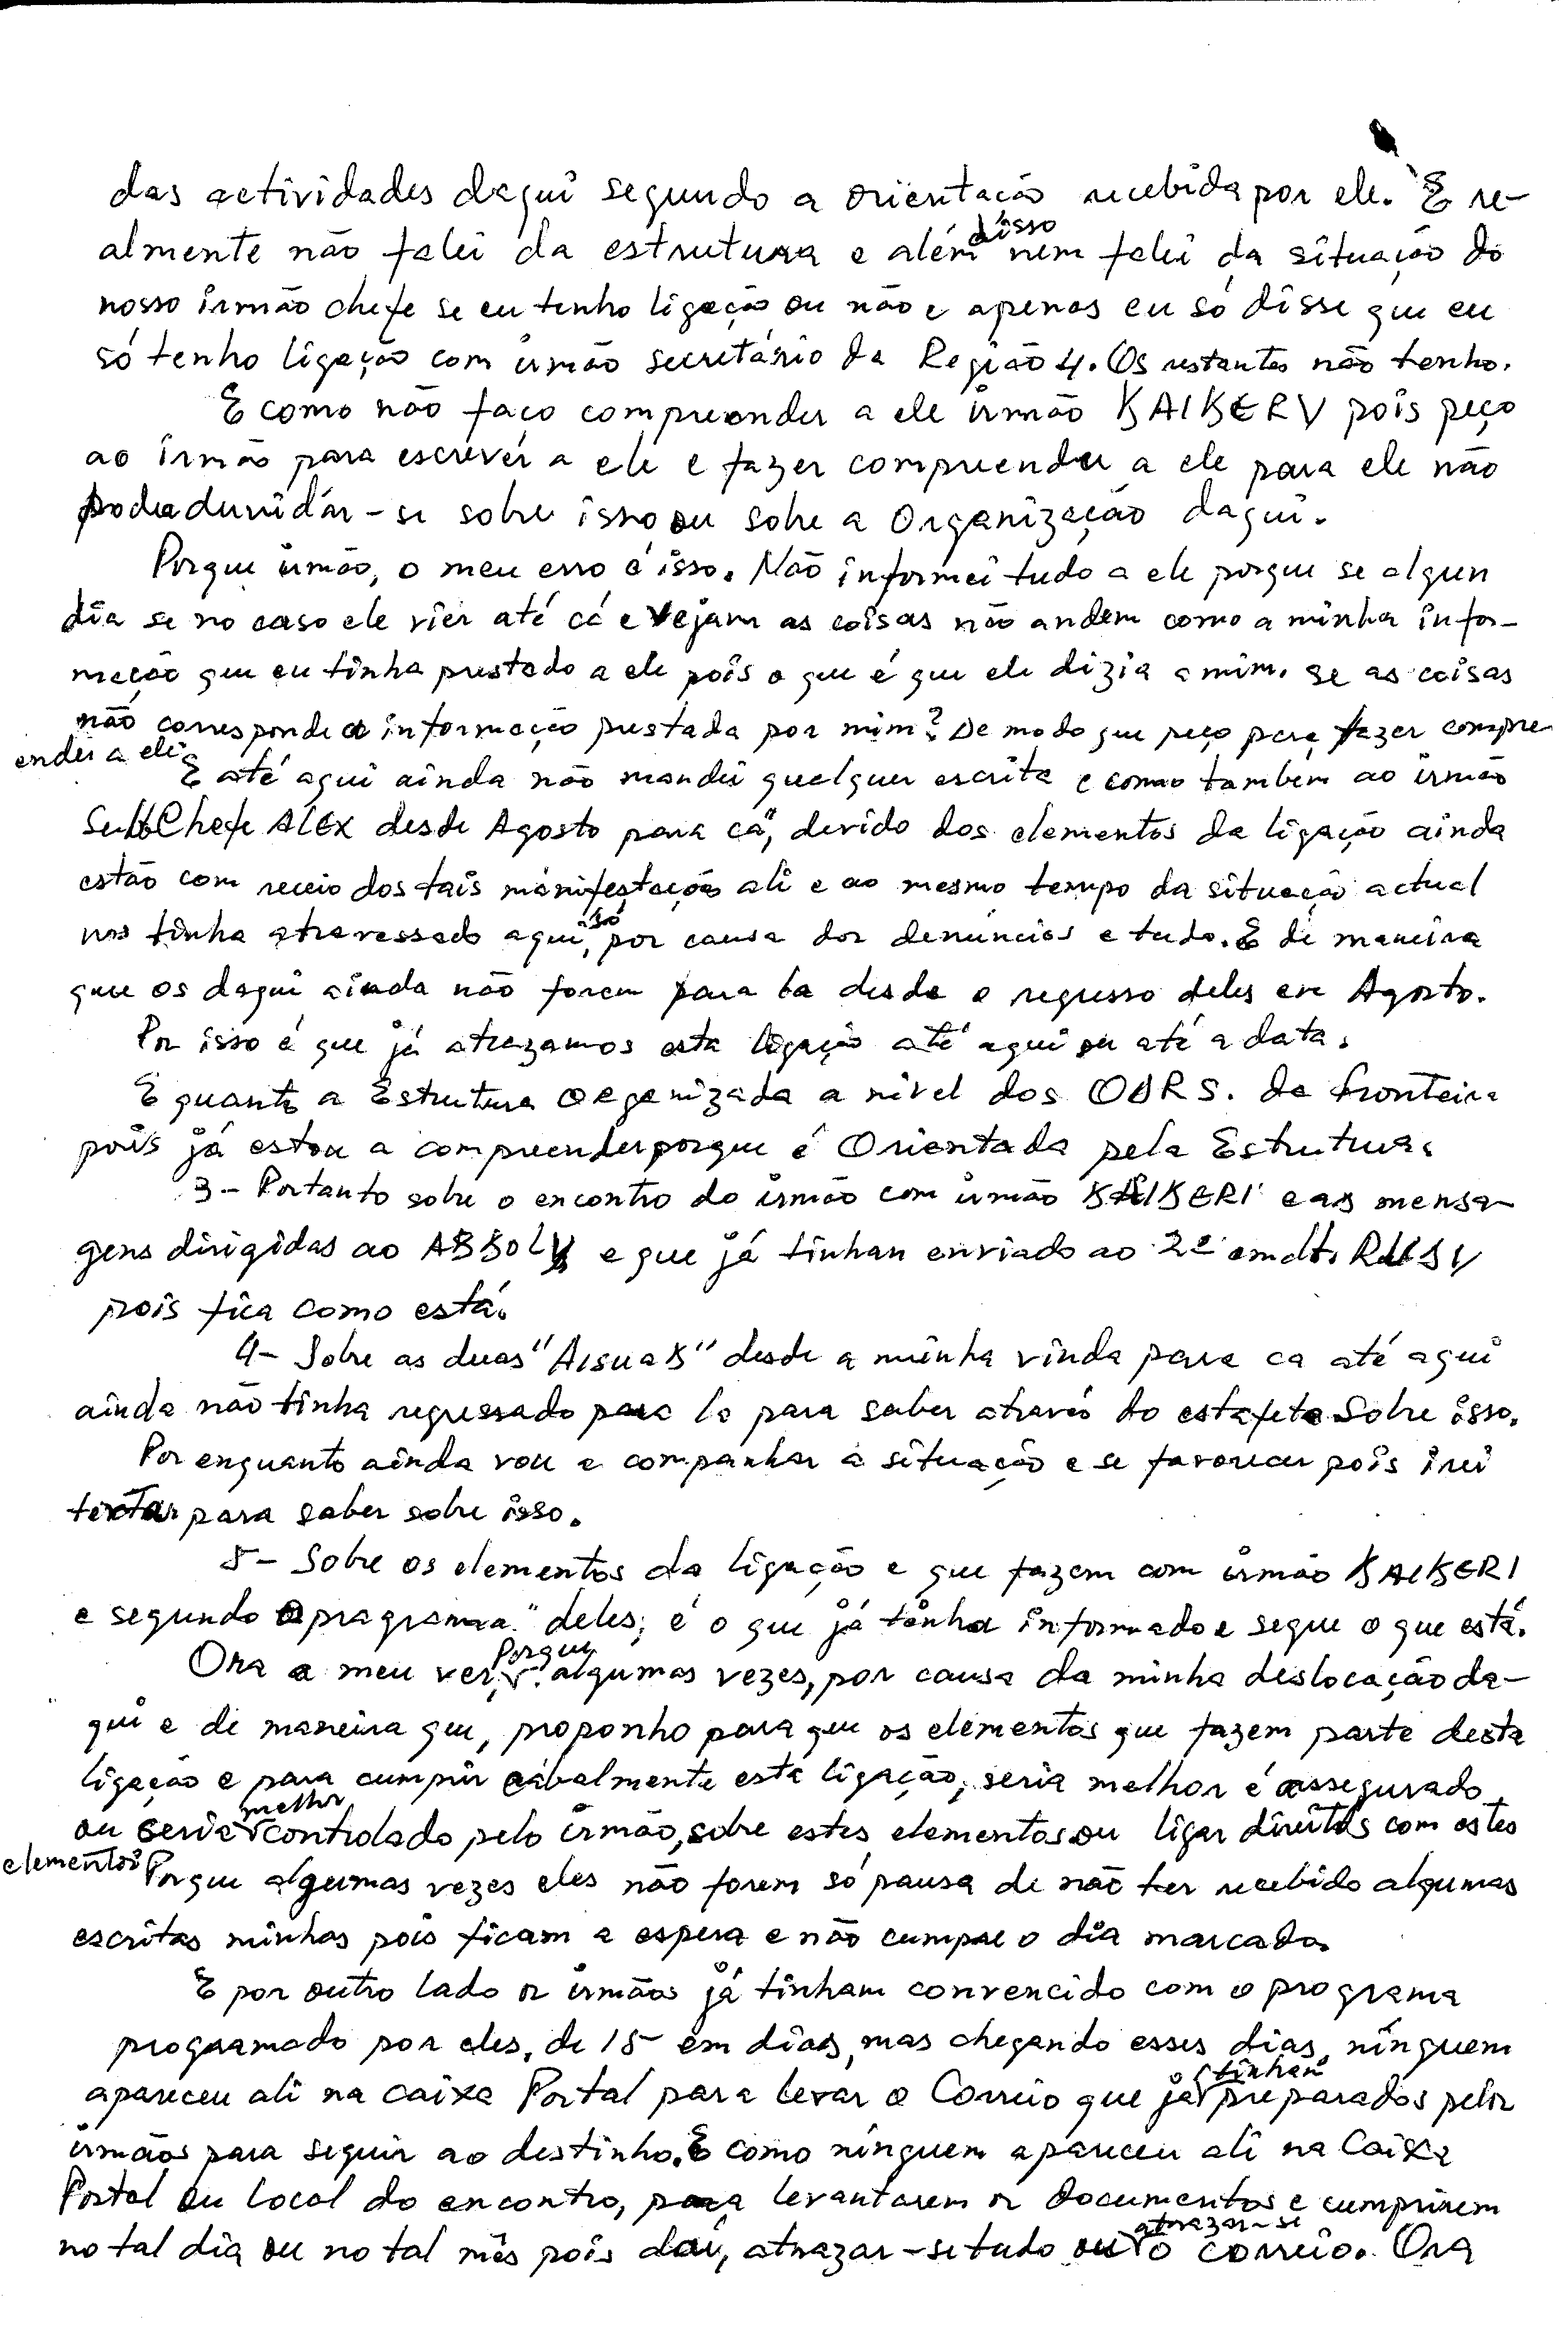 das actividades daqui segundo a orientação recebida por ele. E re-
almente não falei da estrutura e além disso nem falei da situação do
nosso irmão chefe se eu tenho ligação ou não e apenas eu só disse que eu
só tenho ligação com irmão secretário da Região 4. Os restantes não tenho.
E como não faço compreender a ele irmão KAIKERV pois peço
ao irmão para escrever a ele e fazer compreender a ele para ele não
poder duvidár-se sobre isso ou sobre a Organização daqui.
Porque irmão, o meu erro é isso. Não informei tudo a ele porque se algun
dia se no caso ele vier até cá e vejam as coisas não andem como a minha infor-
mação que eu tinha prestado a ele pois o que é que ele dizia a mim. se as coisas
não corresponde a informação prestada por mim? De modo que peço para fazer compre-
ender a ele.
E até aqui ainda não mandei quelquer escrita e como também ao irmão
Sub Chefe ALEX desde Agosto para cá, devido dos elementos da ligação ainda
estão com receio dos tais manifestação ali e ao mesmo tempo da situação actual
nos tinha atravessado aqui, só por causa dos denúncios e tudo. E de maneira
que os daqui ainda não forem para la desde o regresso deles em Agosto.
Por isso é que já atrazamos esta ligação até aqui ou até a data.
E quanto a Estrutura organizada a nivel dos ODRS. da fronteira
pois já estou a compreender porque é Orientada pela Estrutura.
3- Portanto sobre o encontro do irmão com irmão KAIKERI e as mensa-
gens dirigidas ao ABKOLY e que já tinhan enviado ao 2º cmdt.
pois fica como está.
4- Sobre as duas "AISUAK" desde a minha vinda para ca até aqui
ainda não tinha regressado para la para saber através do estafeta sobre isso.
Por enquanto ainda vou a companhar a situação e se favorecer pois irei
tentar para saber sobre isso.
5- Sobre os elementos da ligação e que fazem com irmão KAIKERI
e segundo o programa "deles; é o que já tenha informado e segue o que está.
Ora a meu ver, Porque algumas vezes, por causa da minha deslocação da-
qui e de maneira que, proponho para que os elementos que fazem parte desta
ligação e para cumprir cabalmente esta ligação, seria melhor é assegurado
ou seria melhor controlado pelo irmão, sobre estes elementos ou ligar direitos com estes
elementos. Porque algumas vezes eles não forem só pausa de não ter recebido algumas
escritas minhas pois ficam a espera e não cumpre o dia marcado.
E por outro lado os irmãos já tinham convencido com o programa
programado por eles, de 15 em dias, mas chegando esses dias, ninguem
apareceu ali na caixa Portal para levar o Correio que já tinhan preparados pelos
irmãos para seguir ao destinho. E como ninguem apareceu ali na Caixa
Postal ou local do encontro, para levantarem os documentos e cumprirem
no tal dia ou no tal mês pois daí, atrazar-se tudo ou atrazar-se o correio. Ora